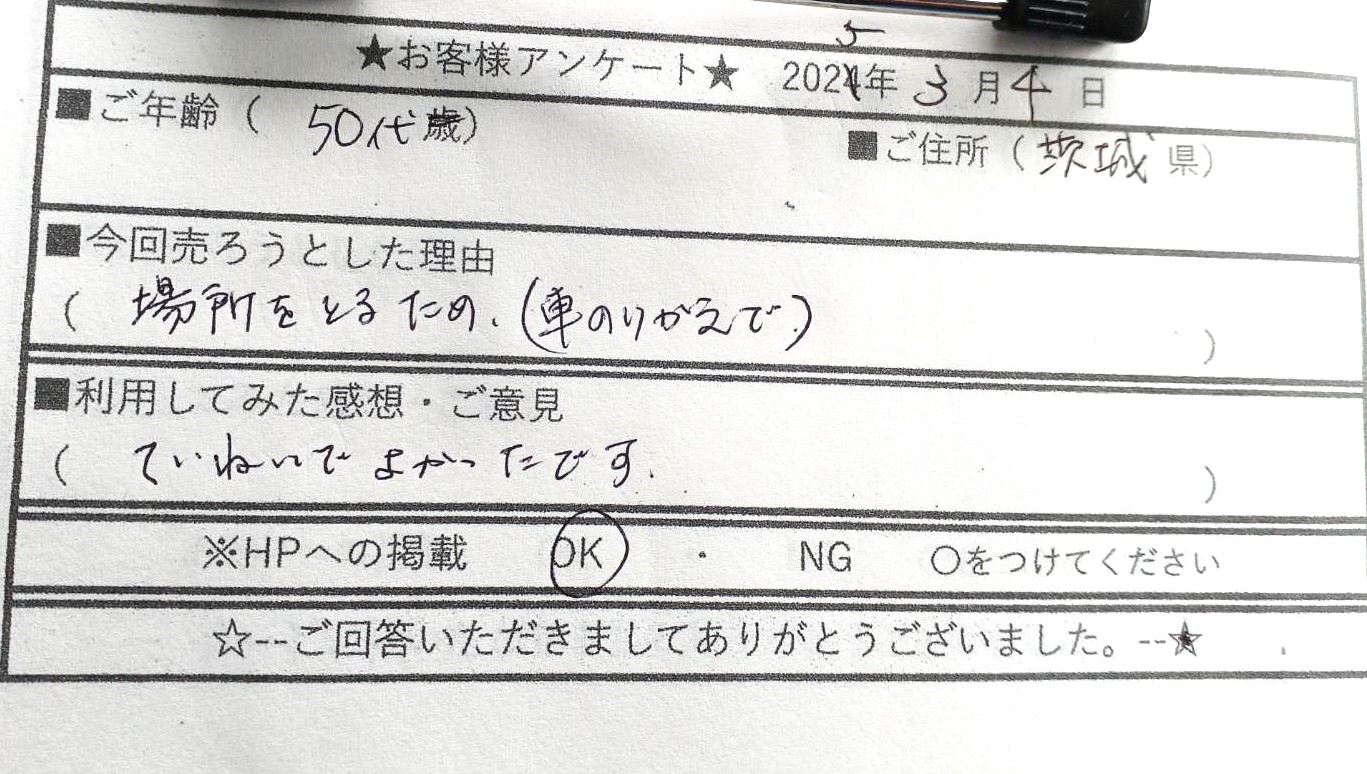 ★お客様アンケート★ 2025年3月4日
■ご年齢( 50代歳) ■ご住所(茨城県)
■今回売ろうとした理由
( 場所をとるため.(車のりかえで.) )
■利用してみた感想・ご意見
( ていねいでよかったです. )
※HPへの掲載 OK ・ NG ○をつけてください
☆--ご回答いただきましてありがとうございました。--★